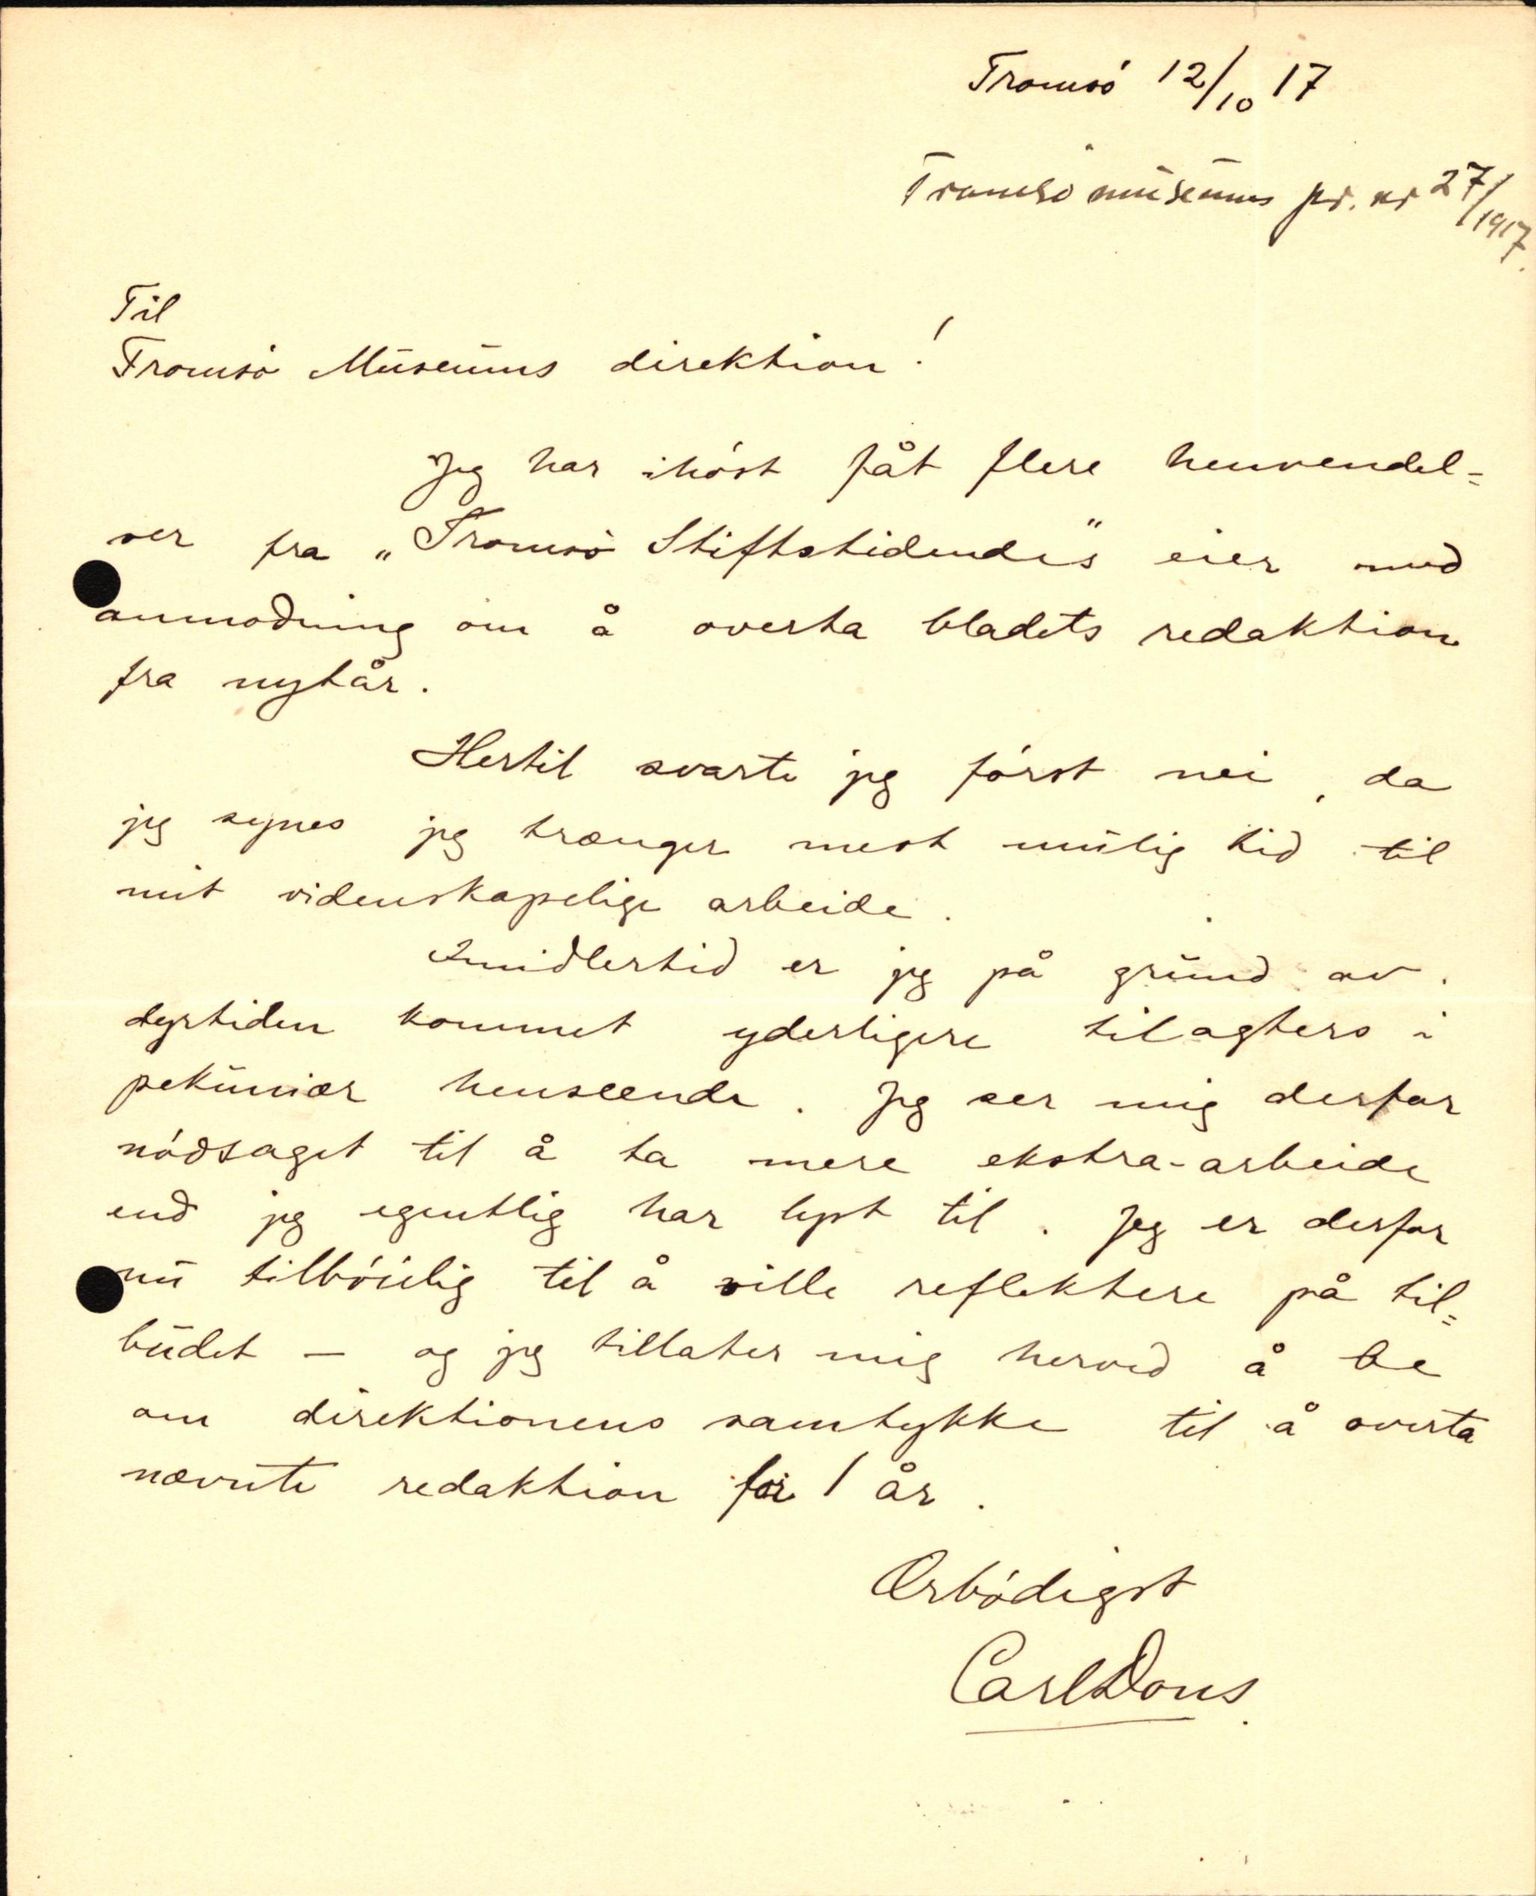 Tromsö 12/10 17
Tromsö museums pr. nr 27/1917.
Til
Tromsö Museums direktion!
Jeg har ihöst fåt flere henvendel=
ser fra „Tromsö Stiftstidende's" eier med
anmodning om å overta bladets redaktion
fra nytår.
Hertil svarte jeg först nei, da
jeg synes jeg trænger mest mulig tid til
mit videnskapelige arbeide.
Imidlertid er jeg på grund av
dyrtiden kommet yderligere tilagters i
pekuniær henseende. Jeg ser mig derfor
nödsaget til å ta mere ekstra-arbeide
end jeg egentlig har lyst til. Jeg er derfor
nu tilböielig til å ville reflektere på til=
budet — og jeg tillater mig herved å be
om direktionens samtykke til å overta
nævnte redaktion for 1 år.
Ærbödigst
Carl Dons.